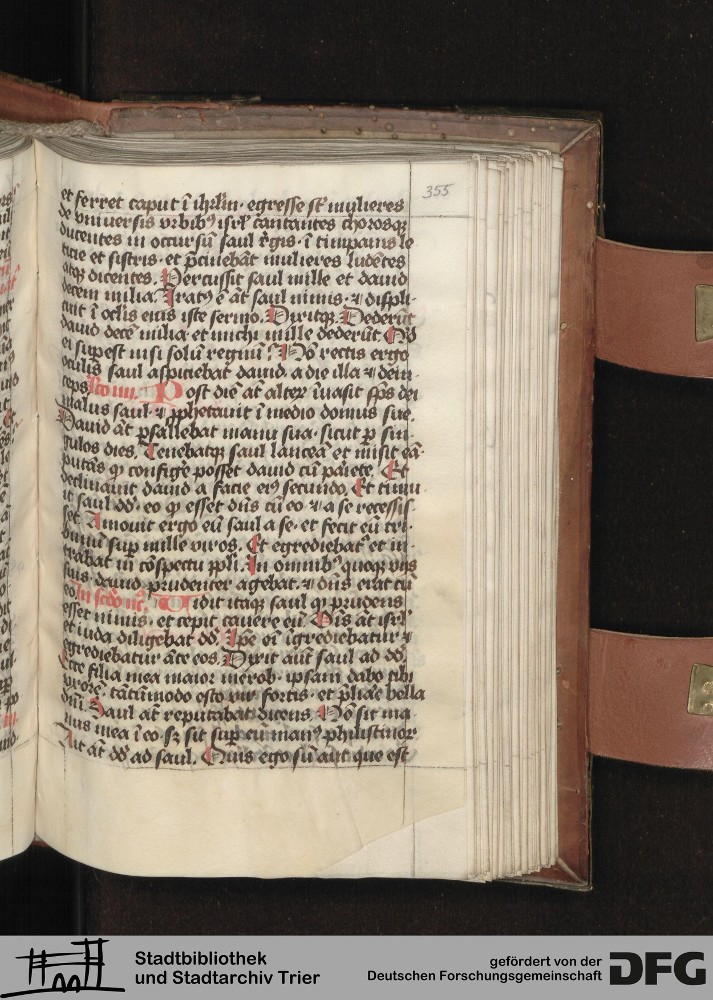 355
et ferret caput ī ihrl̄m· egresse sūt mulieres
de vniuersis vrbibꝰ isrl̄ cantantes chorosqꝫ
ducentes in occursū saul regis· ī timpanis le
ticie et sistris· et p̄cinebāt mulieres ludētes
atqꝫ dicentes. Percussit saul mille et dauid
decem milia. Iratꝰ ē āt saul nimis· ⁊ displi-
cuit ī oclis eius iste sermo. Dixitqꝫ. Dederūt
dauid decē milia· et michi mille dederūt Qͥd
ei supest nisi solū regnū? Nō rectis ergo
oculis saul aspiciebat dauid· a die illa ⁊ dein-
ceps Post diē āt alterū īuasit sp̄s dei
malus saul· ⁊ ꝓphetauit ī medio domus sue.
Dauid āt psallebat manu sua· sicut ꝑ sin-
gulos dies. Tenebatqꝫ saul lanceā· et misit eā·
putās ꝙ confige᷑ posset dauid cū pariete. Et
declinauit dauid a facie eiꝰ secundo. Et timu-
it saul dd̄· eo ꝙ esset dn̄s cū eo ⁊ a se recessis-
set. Amouit ergo eū saul a se· et fecit eū tri-
bunū suꝑ mille viros. Et egrediebat᷑ et in-
trabat in cōspectu ppl̄i. In omnibꝰ quoqꝫ vijs
suis· dauid prudenter agebat· ⁊ dn̄s erat cū
eo Vidit itaqꝫ saul ꝙ prudens
esset nimis· et cepit cauere eū. Oīs āt isrl̄
et iuda diligebat dd̄. Ipe eī īgrediebatur ⁊
egrediebatur āte eos. Dixit aūt saul ad dd̄.
Ecce filia mea maior merob· ipsam dabo tibi
vxorē. tātūmodo esto vir fortis· et p̄liare bella
dn̄i. Saul āt reputabat dicens. Nō sit ma-
nus mea ī eo· sꝫ sit suꝑ eū manꝰ philistinorꝝ
Ait āt dd̄ ad saul. Quis ego sū aut que est
Stadtbibliothek
und Stadtarchiv Trier
gefördert von der
Deutschen Forschungsgemeinschaft
DFG